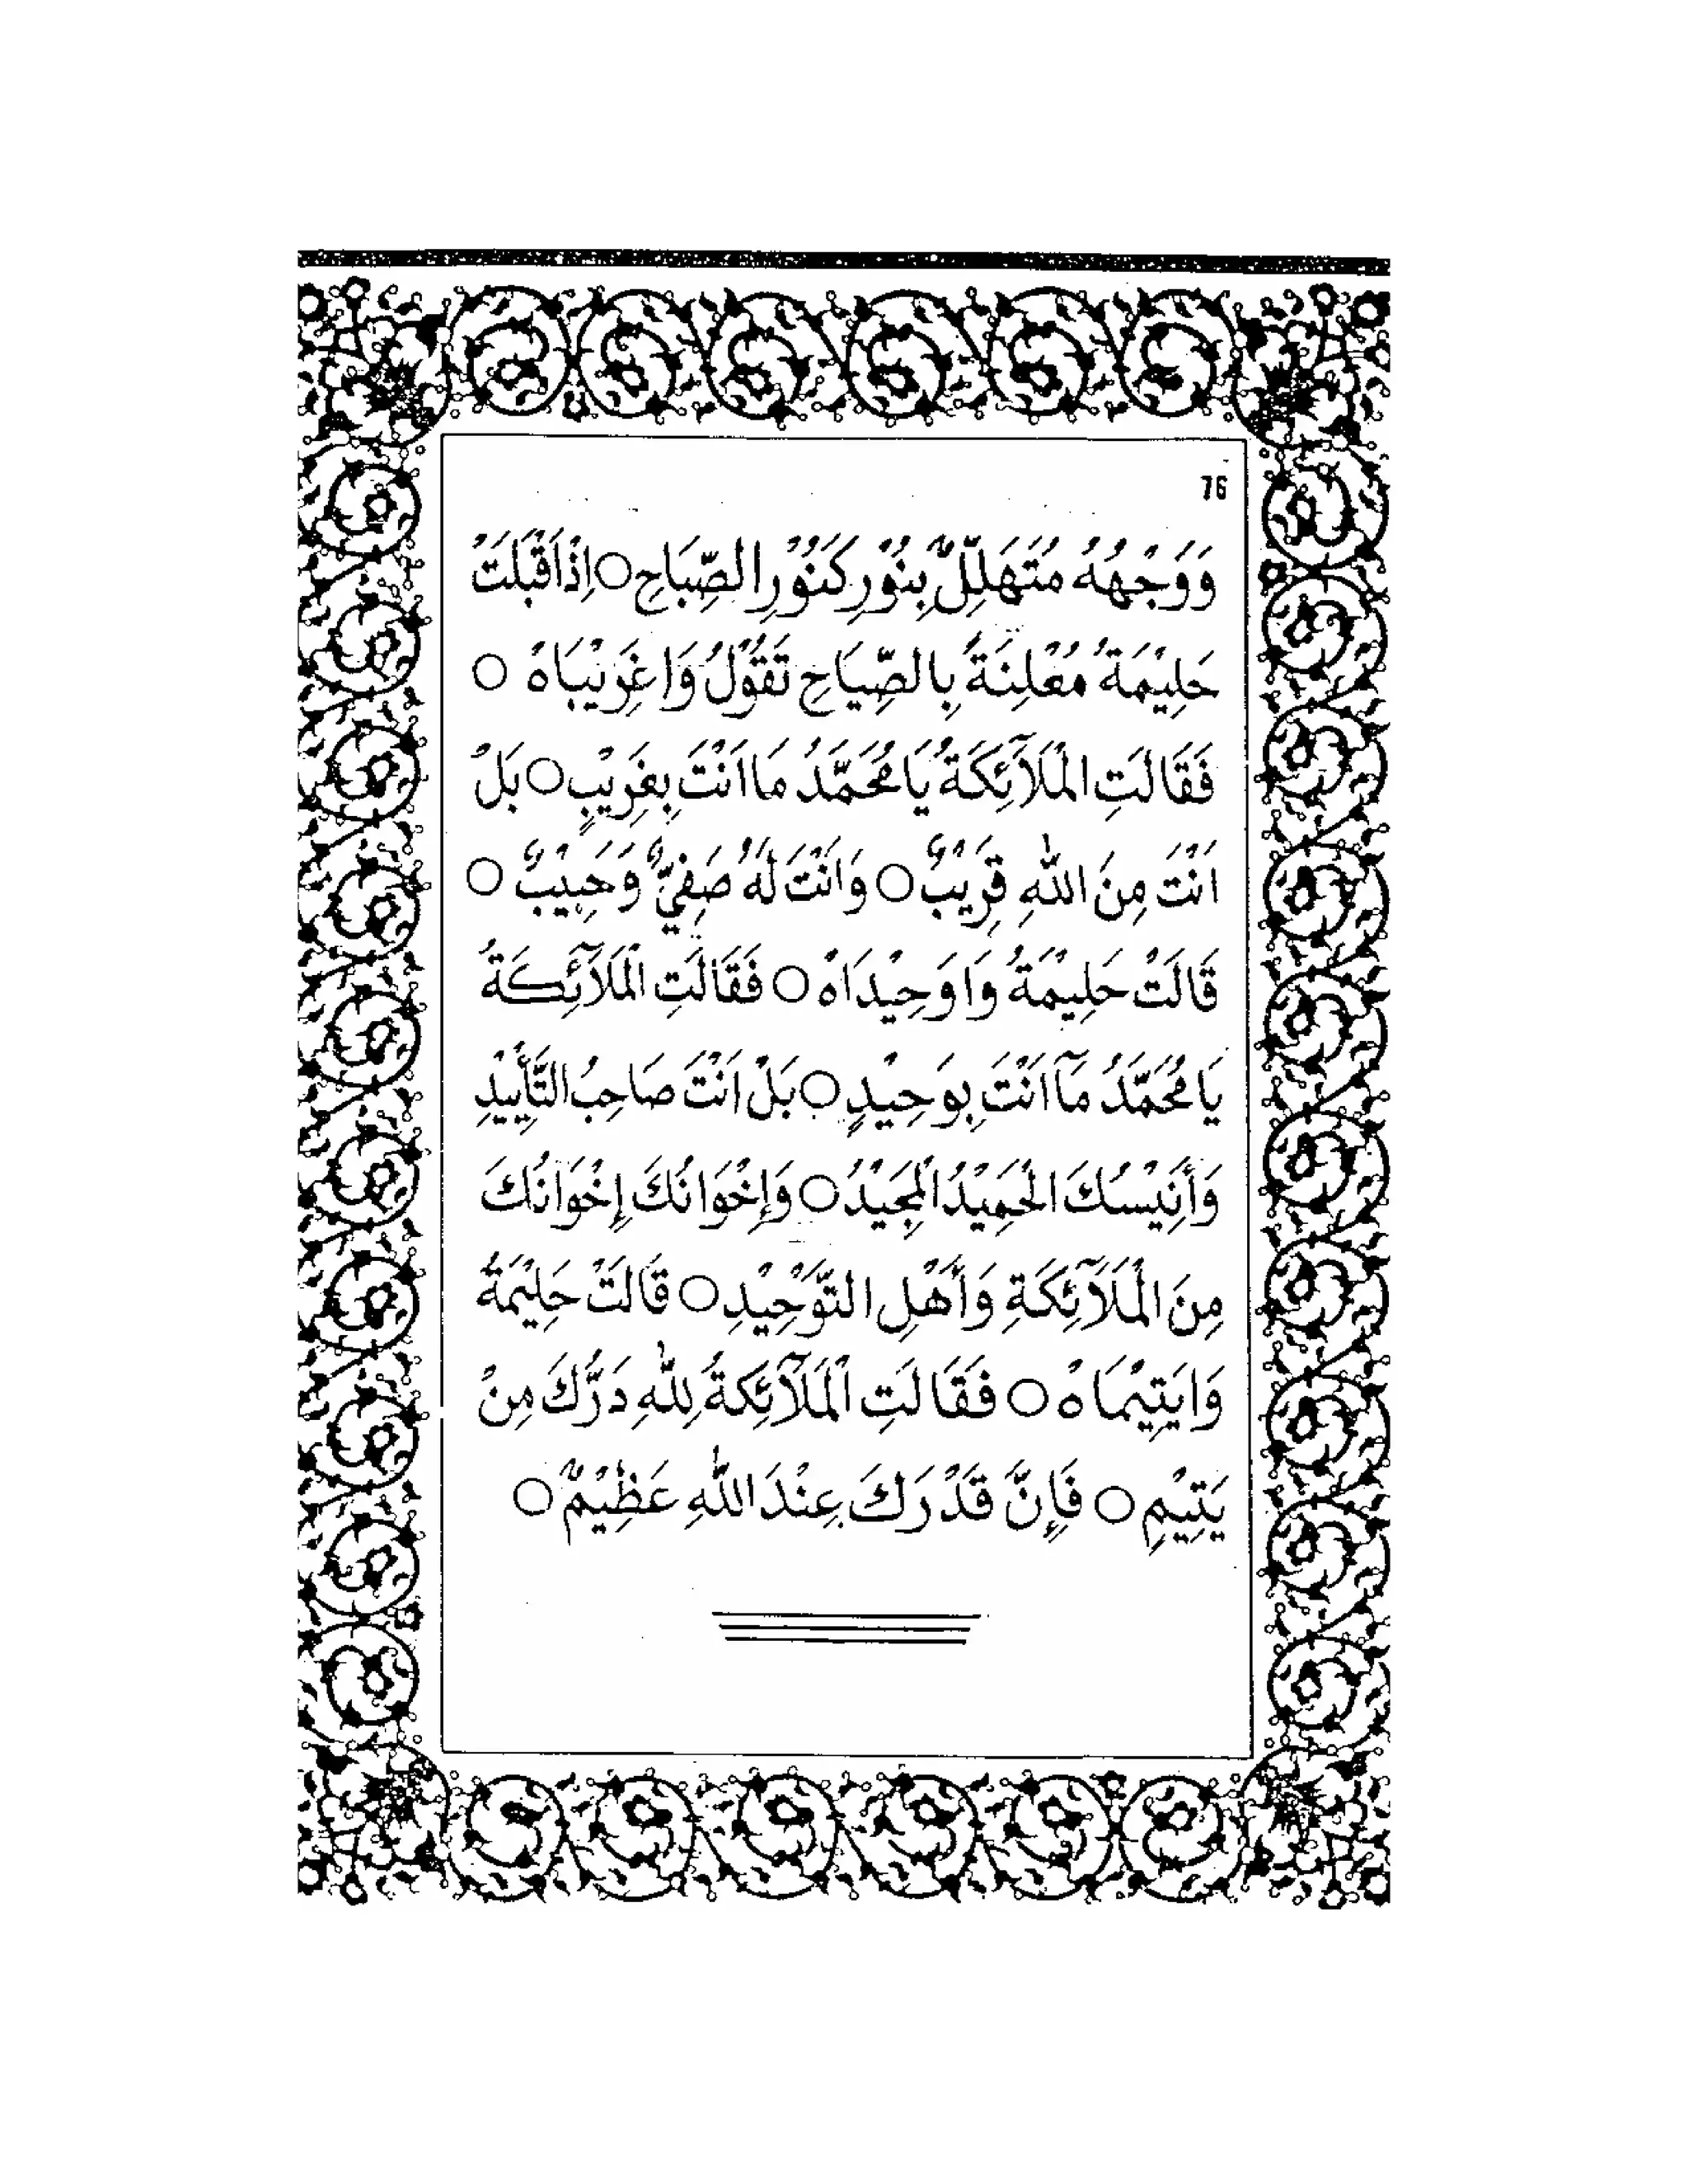 76
وَوَجْهُهُ مُتَهَلِّلٌ بِنُوْرٍ كَنُوْرِ الصِّبَاحِ ○ اِذْ اَقْبَلَتْ
حَلِيْمَةُ مُعْلِنَةً بِالصِّيَاحِ تَقُوْلُ وَا غَرِيْبَاهْ ○
فَقَالَتِ الْمَلَآئِكَةُ يَا مُحَمَّدُ مَا اَنْتَ بِغَرِيْبٍ ○ بَلْ
اَنْتَ مِنَ اللهِ قَرِيْبٌ ○ وَاَنْتَ لَهُ صَفِيٌّ وَحَبِيْبٌ ○
قَالَتْ حَلِيْمَةُ وَا وَحِيْدَاهْ ○ فَقَالَتِ الْمَلَآئِكَةُ
يَا مُحَمَّدُ مَآ اَنْتَ بِوَحِيْدٍ ○ بَلْ اَنْتَ صَاحِبُ التَّأْيِيْدِ
وَأَنِيْسُكَ الْحَمِيْدُ الْمَجِيْدُ ○ وَإِخْوَانُكَ إِخْوَانُكَ
مِنَ الْمَلَآئِكَةِ وَأَهْلِ التَّوْحِيْدِ ○ قَالَتْ حَلِيْمَةُ
وَا يَتِيْمَاهْ ○ فَقَالَتِ الْمَلَآئِكَةُ لِلّٰهِ دَرُّكَ مِنْ
يَتِيْمٍ ○ فَإِنَّ قَدْرَكَ عِنْدَ اللهِ عَظِيْمٌ ○